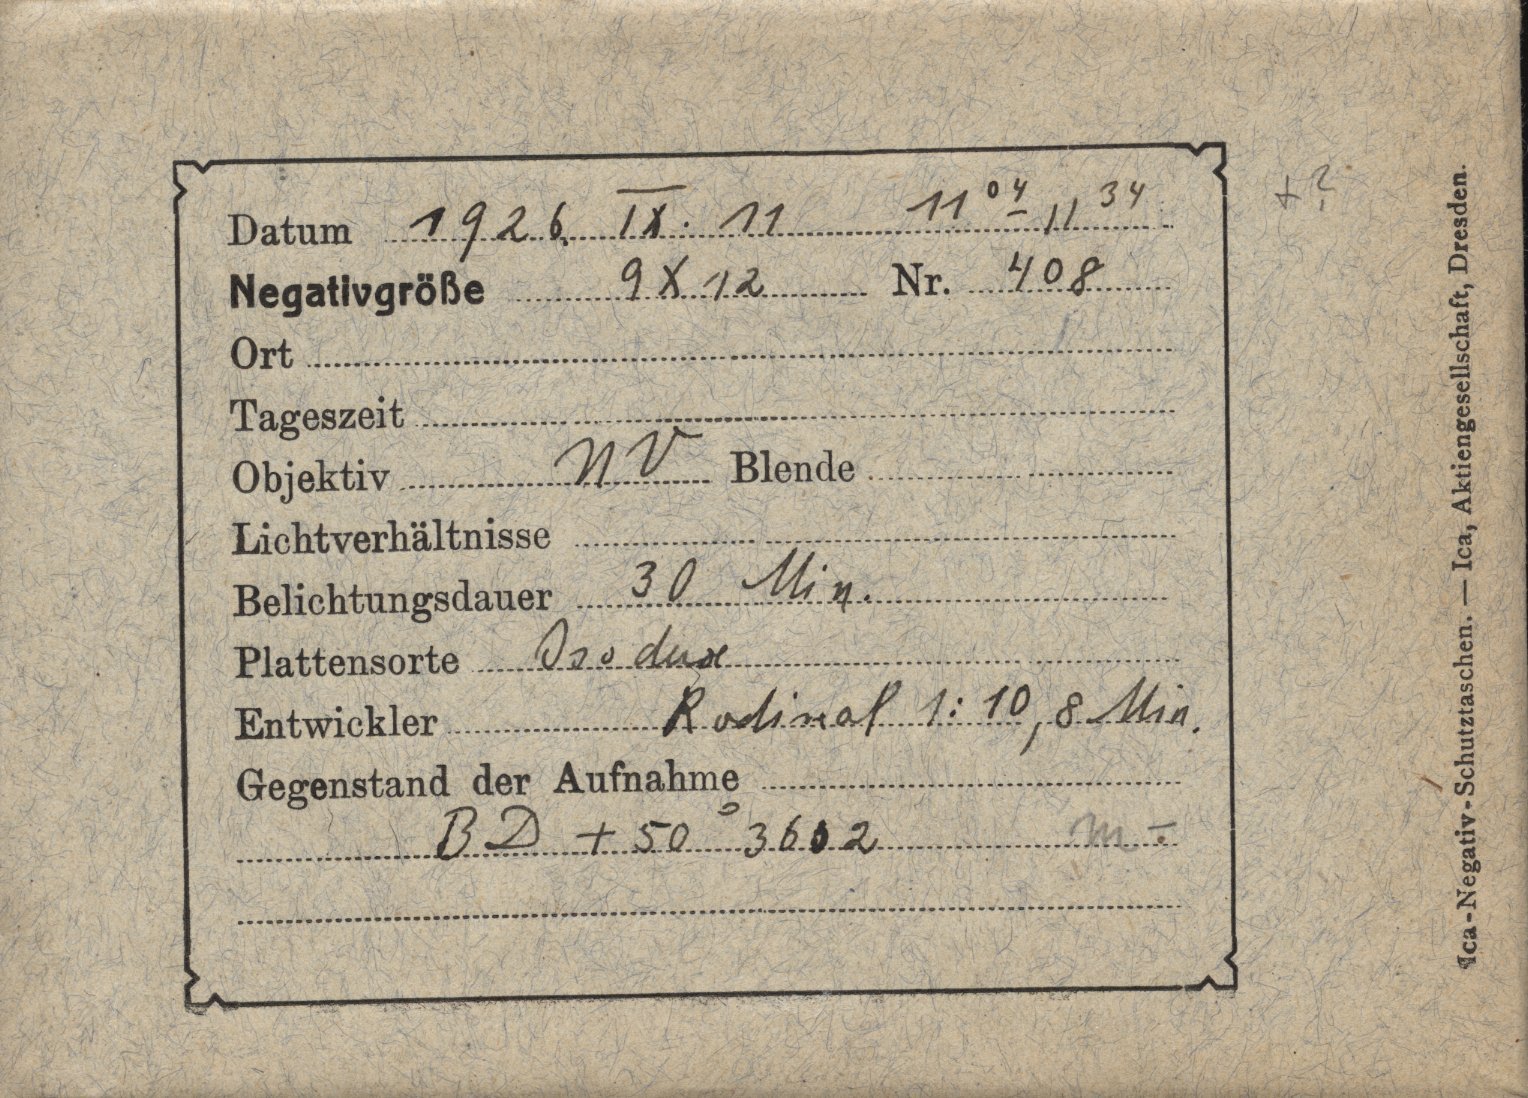 Datum 1926. IX. 11 11⁰⁴ - 11³⁴
Negativgröße 9 X 12 Nr. 408
Ort
Tageszeit
Objektiv NV Blende
Lichtverhältnisse
Belichtungsdauer 30 Min.
Plattensorte Isodux
Entwickler Rodinal 1:10, 8 Min.
Gegenstand der Aufnahme
BD + 50° 3602 m -
+?
Ica-Negativ-Schutztaschen. — Ica, Aktiengesellschaft, Dresden.